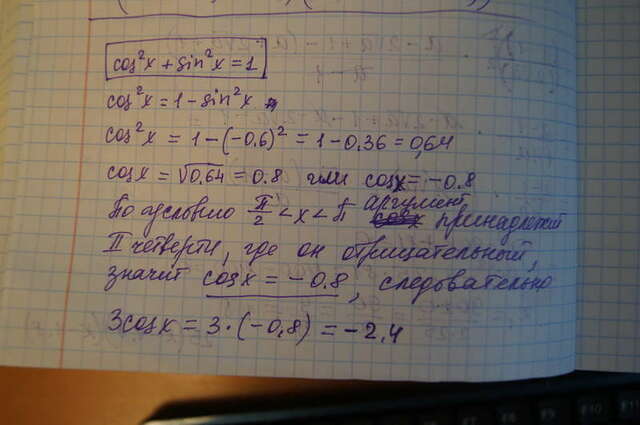 cos²x + sin²x = 1
cos²x = 1 - sin²x
cos²x = 1 - (-0.6)² = 1 - 0.36 = 0,64
cosx = √0.64 = 0.8 или cosx = -0.8
По условию π/2 < x < π аргумент принадлежит
II четверти, где он отрицательный,
значит cosx = -0.8, следовательно
3cosx = 3·(-0,8) = -2,4